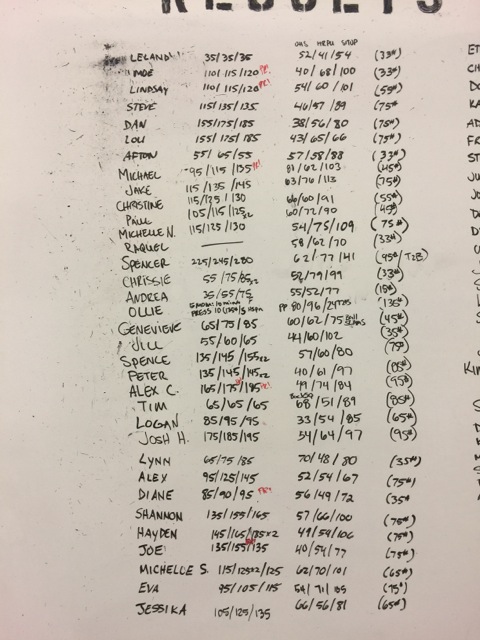 RESULTS
OHS HRPU STOP
LELAND 35/35/35 52/41/54 (33#)
MOE 110/115/120 PR! 40/68/100 (33#)
LINDSAY 110/115/120 PR! 54/60/101 (55#)
STEVE 115/135/135 46/57/89 (75#)
DAN 155/175/185 38/56/80 (75#)
LOU 155/175/185 43/65/66 (75#)
AFTON 55/65/55 57/58/88 (33#)
MICHAEL 95/115/135 PR! 81/62/103 (45#)
JAKE 115/135/145 63/76/113 (75#)
CHRISTINE 115/125/130 66/60/91 (55#)
PAUL 105/115/125x2 60/72/90 (45#)
MICHELLE N. 115/125/130 54/75/109 (75#)
RAQUEL — 58/62/70 (33#)
SPENCER 225/245/280 62/77/41 (95#/T2B)
CHRISSIE 55/75/85x2 58/79/99 (33#)
ANDREA 35/55/75 55/52/77 (15#)
OLLIE PP 80/96/24 (135#)
GENEVIEVE 65/75/85 60/62/75 BALL SLAMS (45#)
JILL 55/60/65 44/60/102 (35#)
SPENCE 135/145/155x2 57/60/80 (75)
PETER 135/145/145x2 40/61/97 (85#)
ALEX C. 165/175/185 PR! 49/74/84 (95#)
TIM 65/65/65 68/51/89 (85#)
LOGAN 85/95/95 33/54/85 (65#)
JOSH H. 175/185/195 54/64/97 (95#)
LYNN 65/75/85 70/48/80 (35#)
ALEX 95/125/145 52/54/67 (75#)
DIANE 85/90/95 PR! 56/49/72 (35#
SHANNON 135/155/165 57/66/100 (75#)
HAYDEN 145/165/185x2 49/54/106 (75#)
JOE 135/155/135 40/54/77 (75#)
MICHELLE S. 115/125x2/125 62/70/101 (65#)
EVA 95/105/115 54/71/105 (75#)
JESSIKA 105/125/135 66/56/81 (65#)